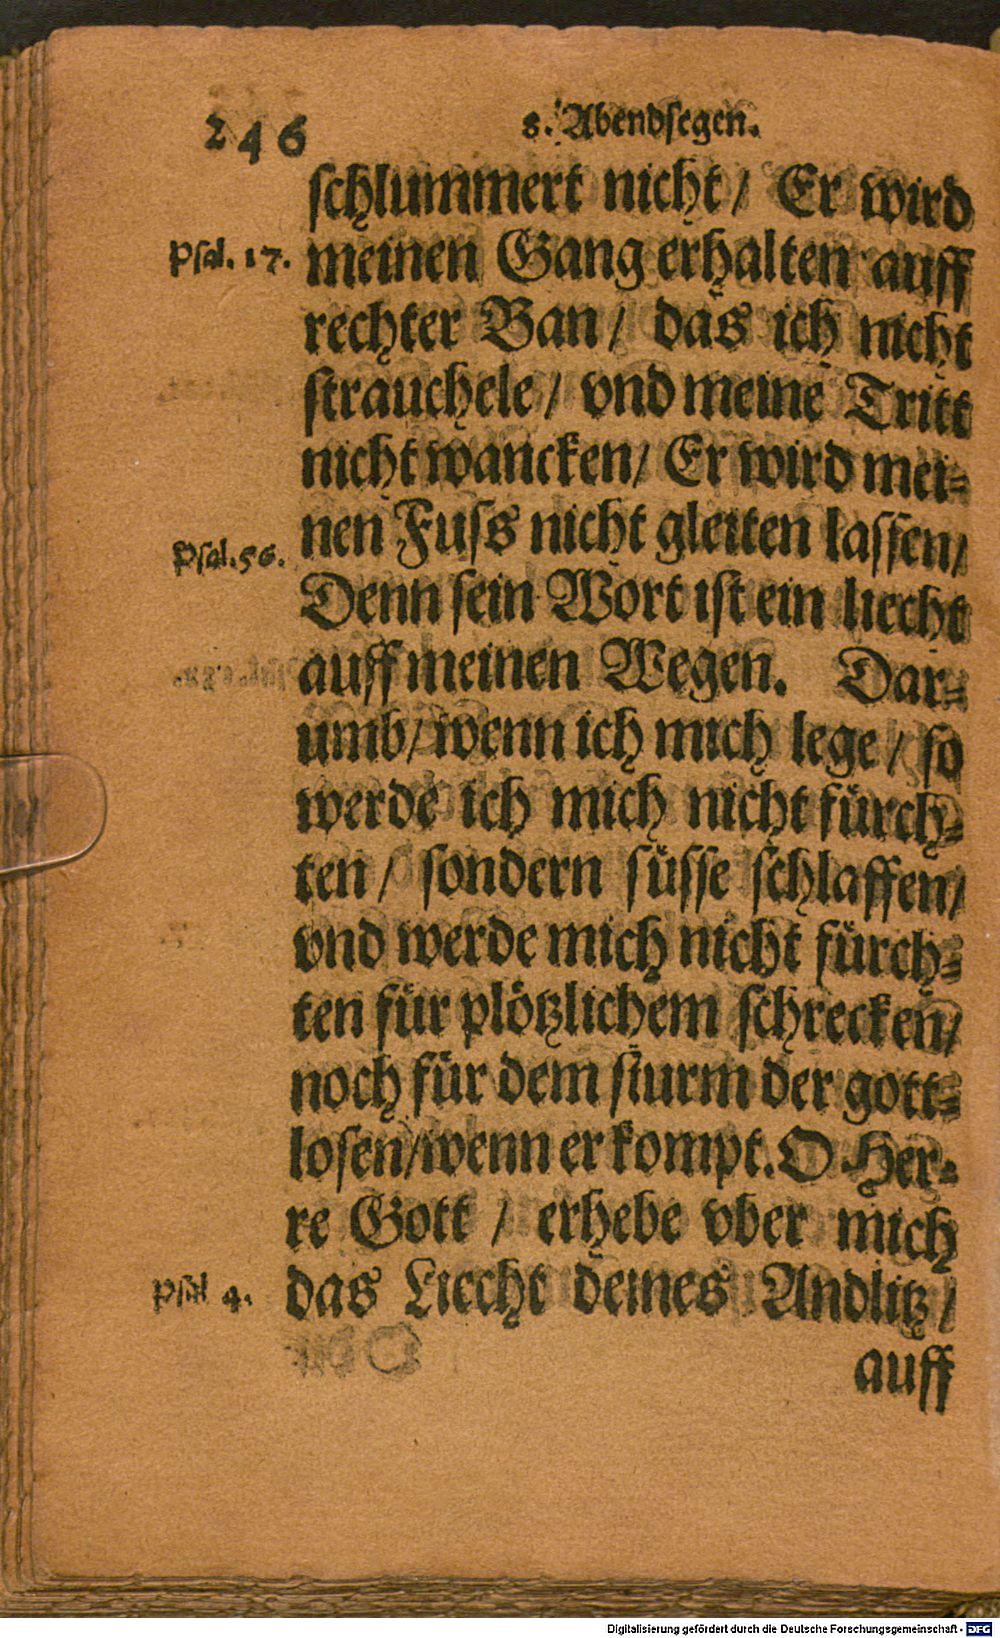 246
8. Abendsegen.
schlummert nicht / Er wird
Psal. 17.
meinen Gang erhalten auff
rechter Ban / das ich nicht
strauchele / vnd meine Tritt
nicht wancken / Er wird mei-
nen Fuss nicht gleiten lassen /
Psal. 56.
Denn sein Wort ist ein liecht
auff meinen Wegen. Dar-
umb / wenn ich mich lege / so
werde ich mich nicht fürch-
ten / sondern süsse schlaffen /
vnd werde mich nicht fürch-
ten für plötzlichem schrecken /
noch für dem sturm der gott-
losen / wenn er kompt. O Her-
re Gott / erhebe vber mich
Psal 4.
das Liecht deines Andlitz /
auff
Digitalisierung gefördert durch die Deutsche Forschungsgemeinschaft - DFG